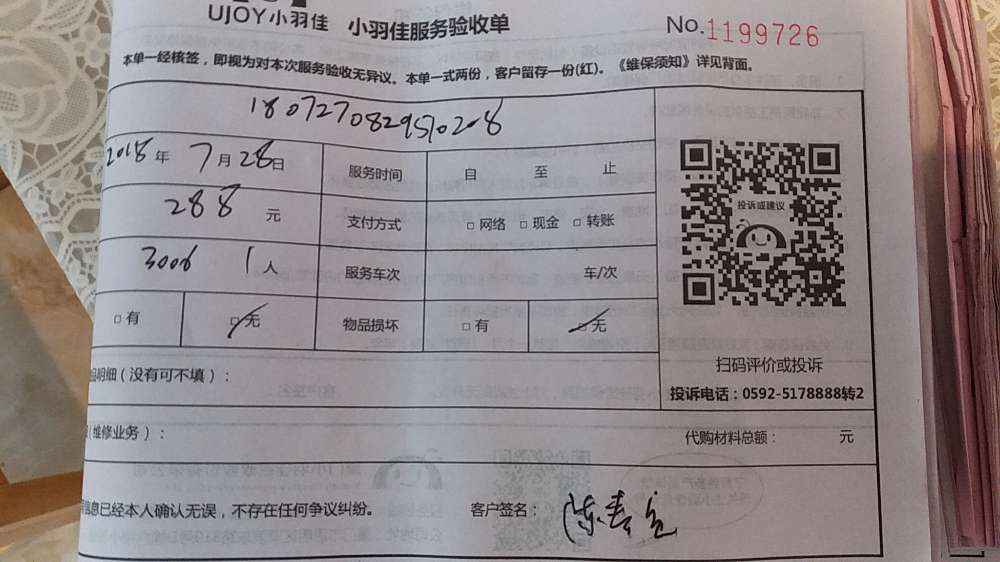 UJOY小羽佳 小羽佳服务验收单 No.1199726
本单一经核签，即视为对本次服务验收无异议。本单一式两份，客户留存一份(红)。《维保须知》详见背面。
1807270829570208
2018年 7月28日 服务时间 自 至 止
288 元 支付方式 □ 网络 □ 现金 □ 转账
3006 1人 服务车次 车/次
□ 有 □ 无 物品损坏 □ 有 □ 无
投诉或建议
扫码评价或投诉
投诉电话：0592-5178888转2
明细（没有可不填）：
（维修业务）： 代购材料总额： 元
信息已经本人确认无误，不存在任何争议纠纷。 客户签名：